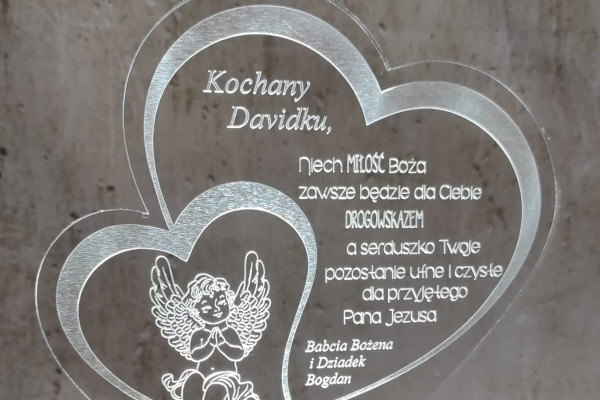 Kochany
Davidku,
Niech MIŁOŚĆ Boża
zawsze będzie dla Ciebie
DROGOWSKAZEM
a serduszko Twoje
pozostanie ufne i czyste
dla przyjętego
Pana Jezusa
Babcia Bożena
i Dziadek
Bogdan